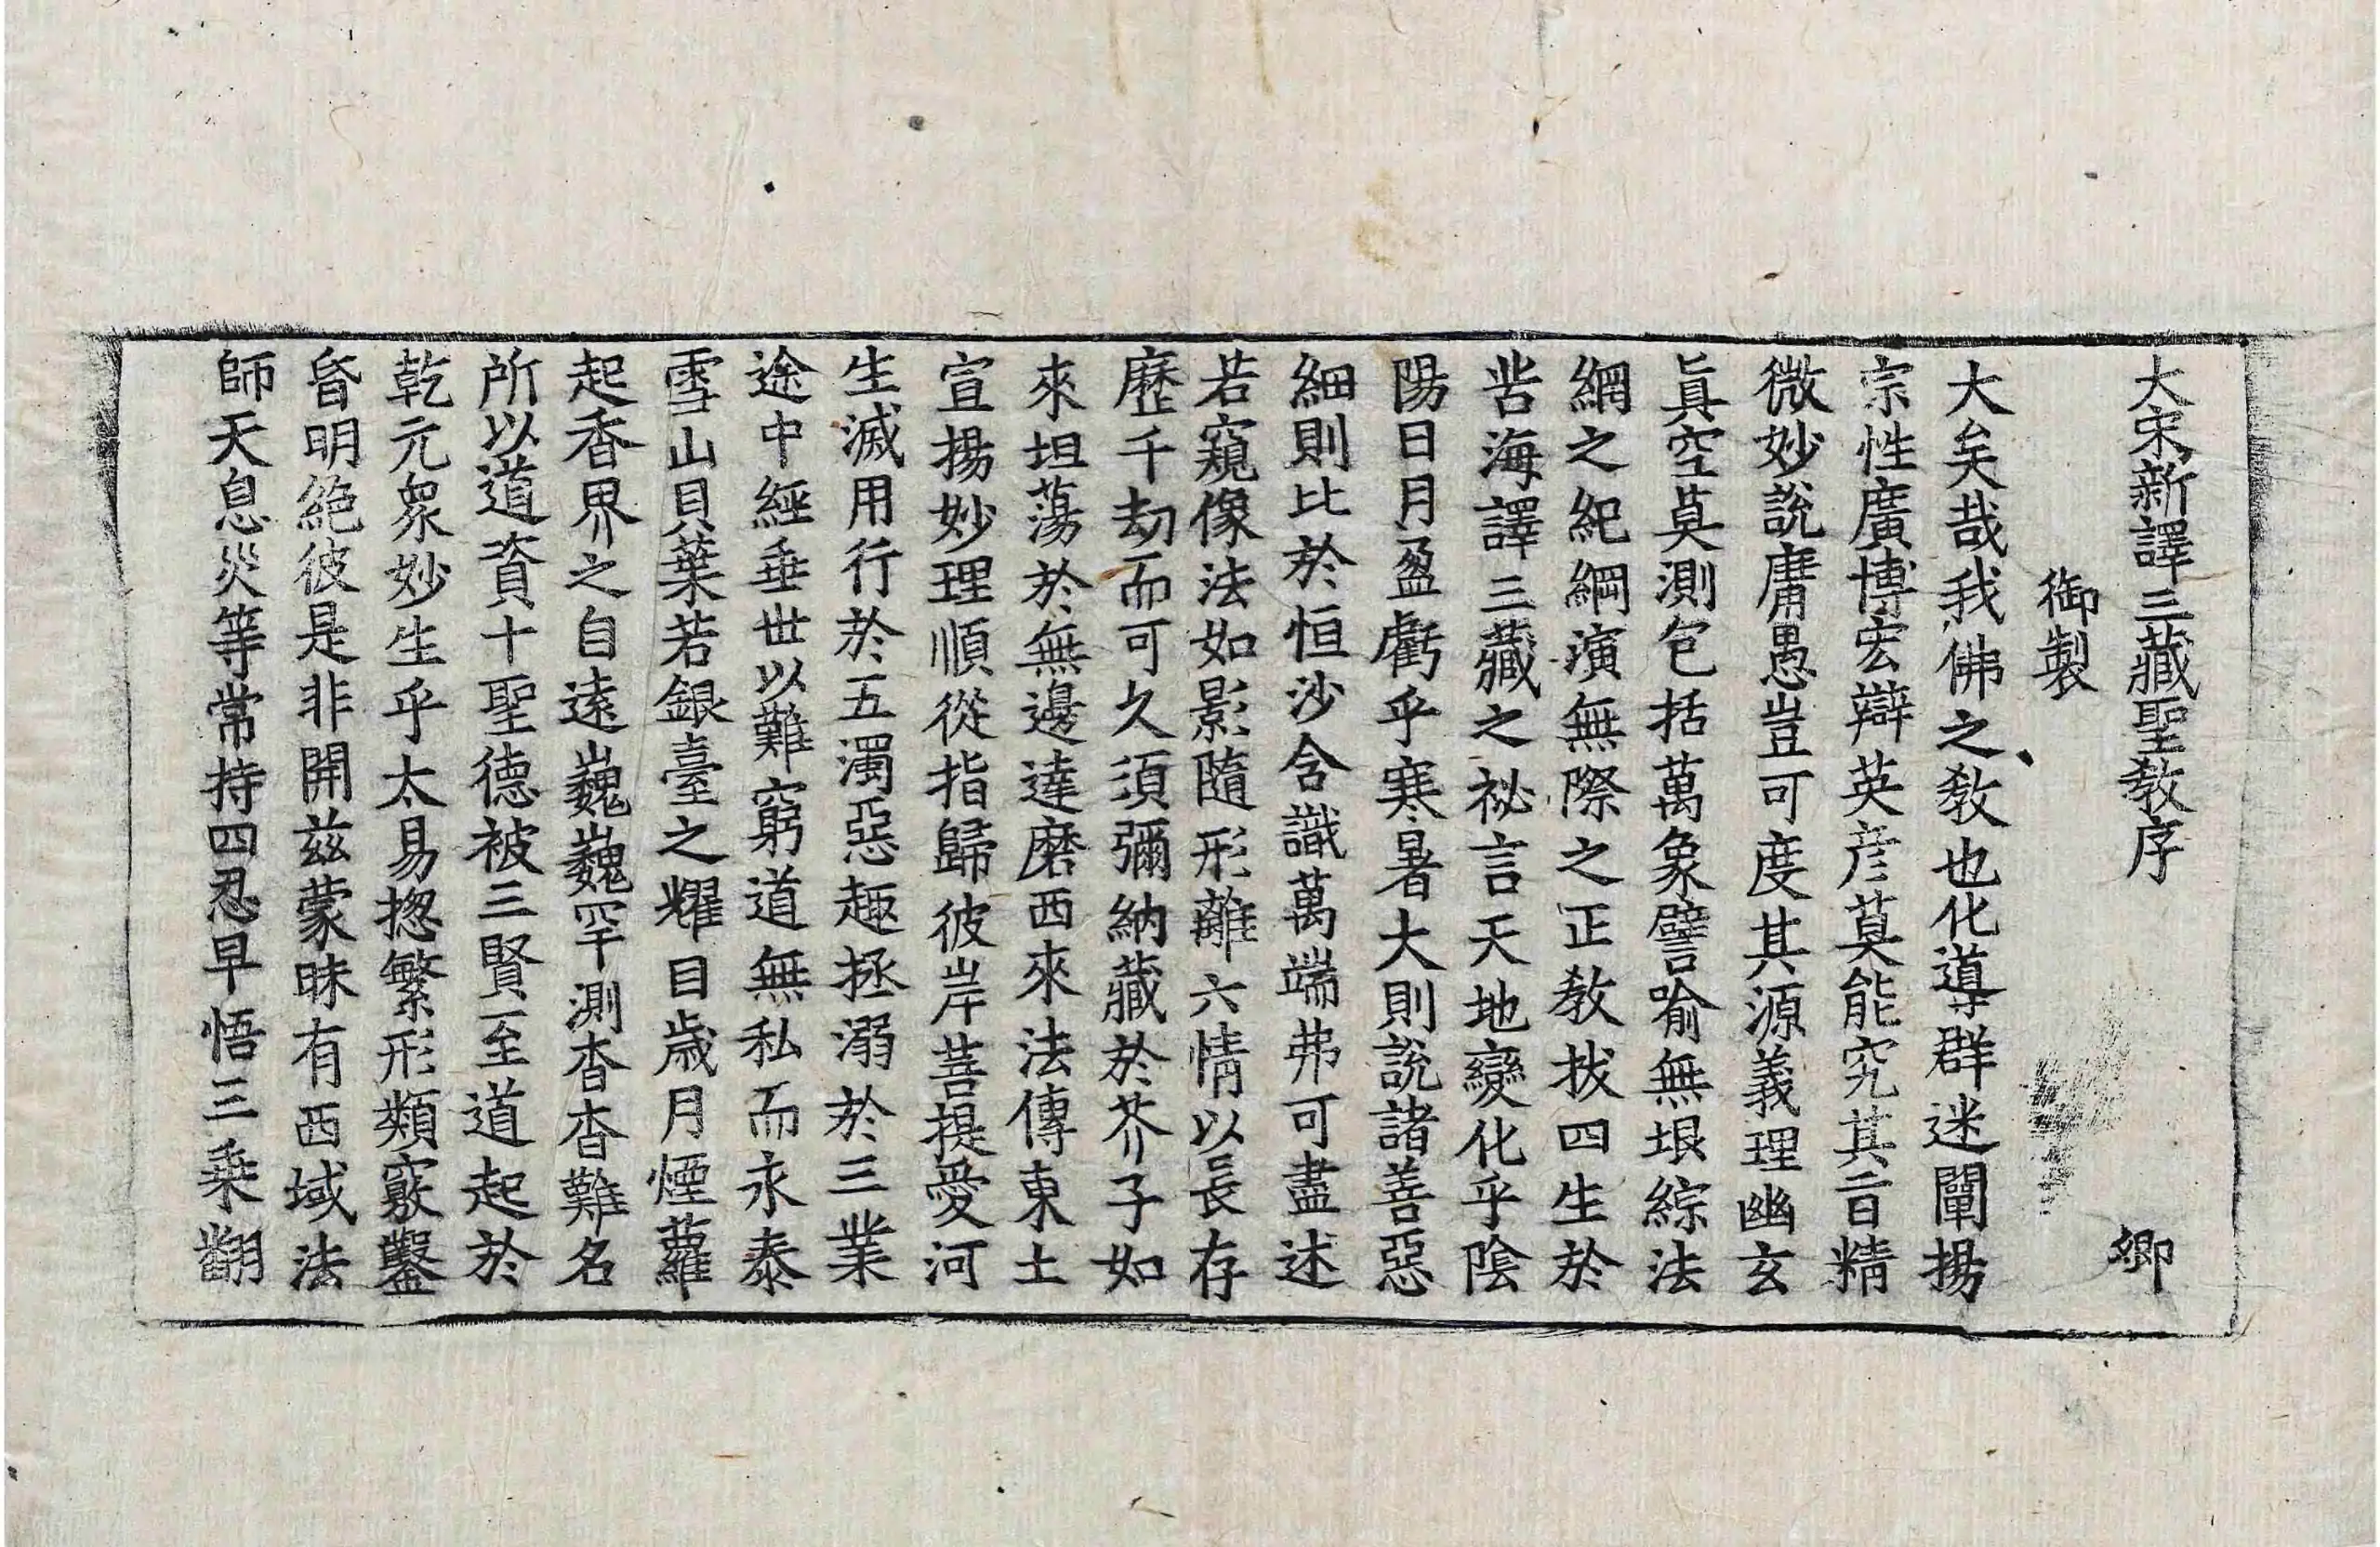 大宋新譯三藏聖教序 卿
御製
大矣哉我佛之教也化導群迷闡揚
宗性廣博宏辯英彦莫能究其旨精
微妙說庸愚豈可度其源義理幽玄
眞空莫測包括萬象譬喻無垠綜法
網之紀綱演無際之正教拔四生於
苦海譯三藏之祕言天地變化乎陰
陽日月盈虧乎寒暑大則說諸善惡
細則比於恒沙含識萬端弗可盡述
若窺像法如影隨形離六情以長存
歷千劫而可久須彌納藏於芥子如
來坦蕩於無邊達磨西來法傳東土
宣揚妙理順從指歸彼岸菩提愛河
生滅用行於五濁惡趣拯溺於三業
途中經垂世以難窮道無私而永泰
雪山貝葉若銀臺之耀目歲月煙蘿
起香界之自遠巍巍罕測杳杳難名
所以道資十聖德被三賢至道起於
乾元衆妙生乎太易揔繁形類竅鑿
昏明絶彼是非開茲蒙昧有西域法
師天息災等常持四忍早悟三乘翻